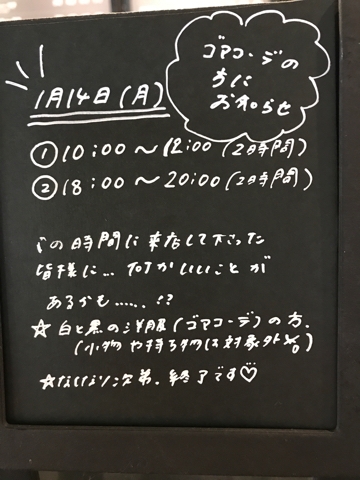 ゴアコーデの
方に
お知らせ
1月14日(月)
① 10:00〜12:00(2時間)
② 18:00〜20:00(2時間)
この時間に来店して下さった
皆様に…何かいいことが
あるかも……!?
☆白と黒の洋服(ゴアコーデ)の方.
(小物や持ち物は対象外%)
☆なくなり次第.終了です♡